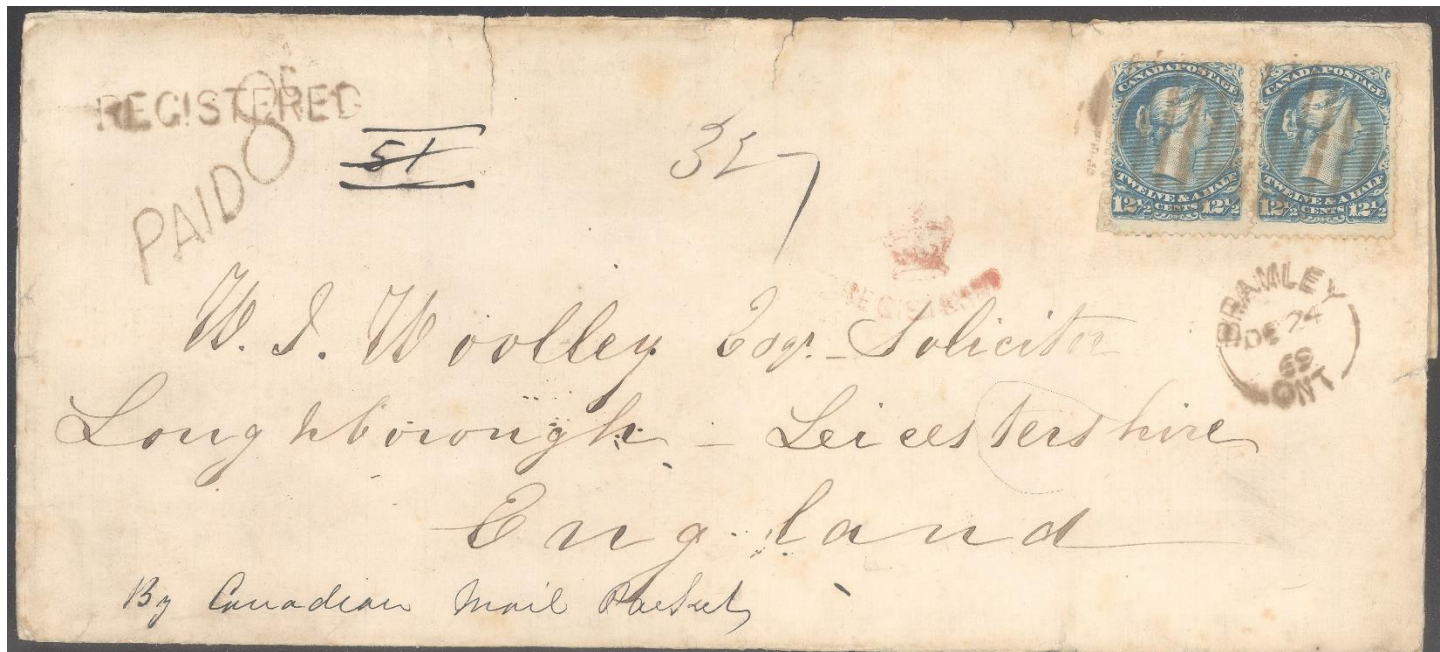 REGISTERED
PAID
51
CANADA POSTAGE
TWELVE & A HALF
12½ CENTS 12½
CANADA POSTAGE
TWELVE & A HALF
12½ CENTS 12½
REGISTERED
BRAMLEY
DE 24
69
ONT
W. J. Woolley Esqr. - Solicitor
Loughborough - Leicestershire
England
By Canadian Mail Packet